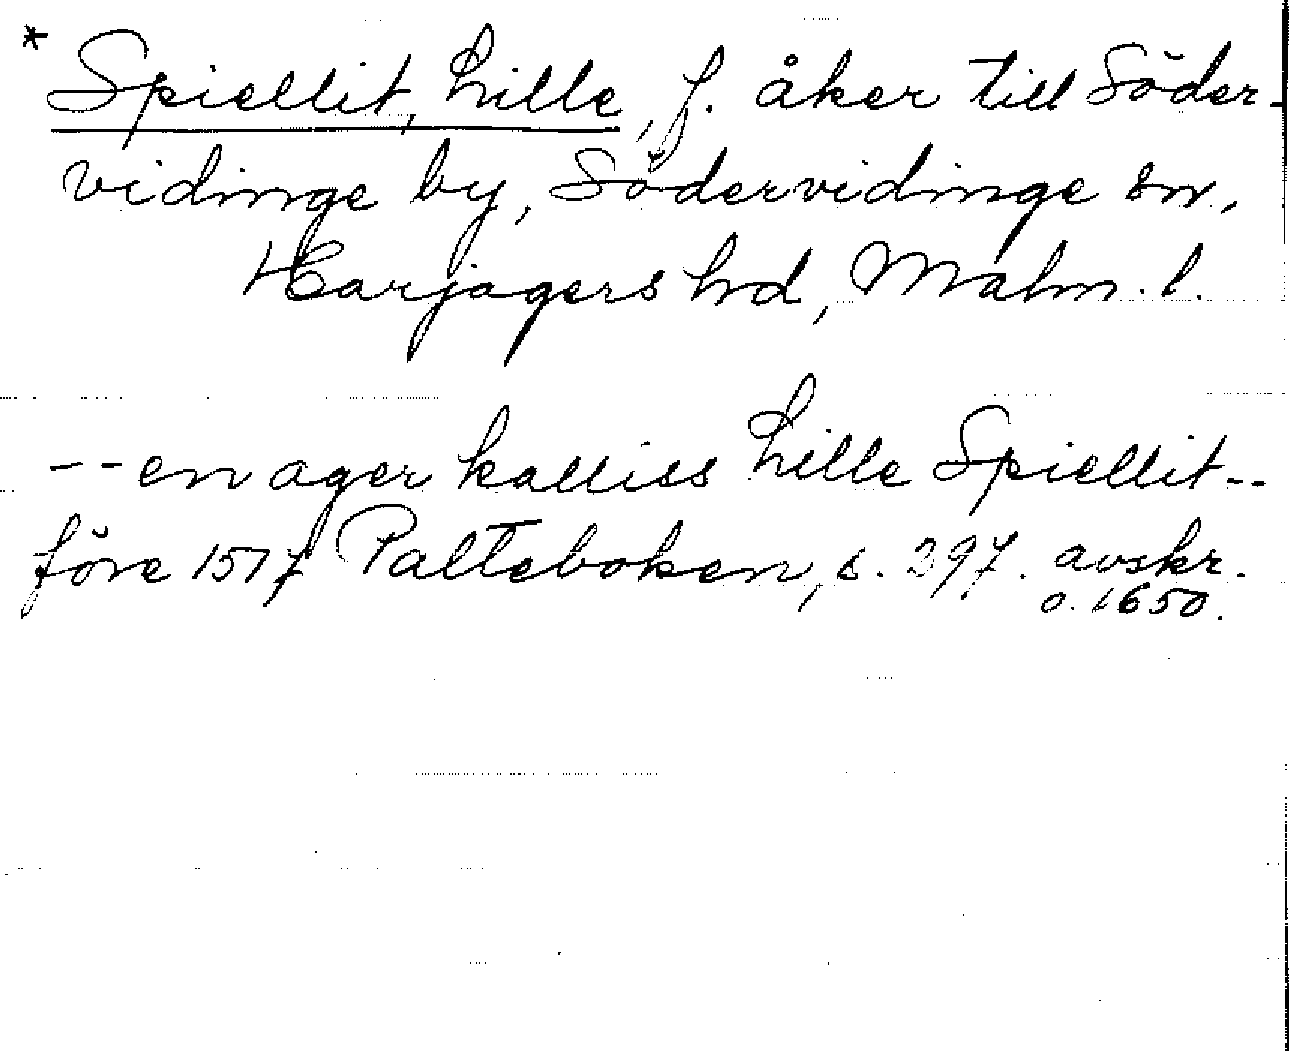 * Spiellit, Lille, f. åker till Söder-
vidinge by, Södervidinge sn,
Harjagers hd, Malm. l.
-- en ager kalliss Lille Spiellit --
före 1517 Palteboken, s. 297. avskr.
o. 1650.